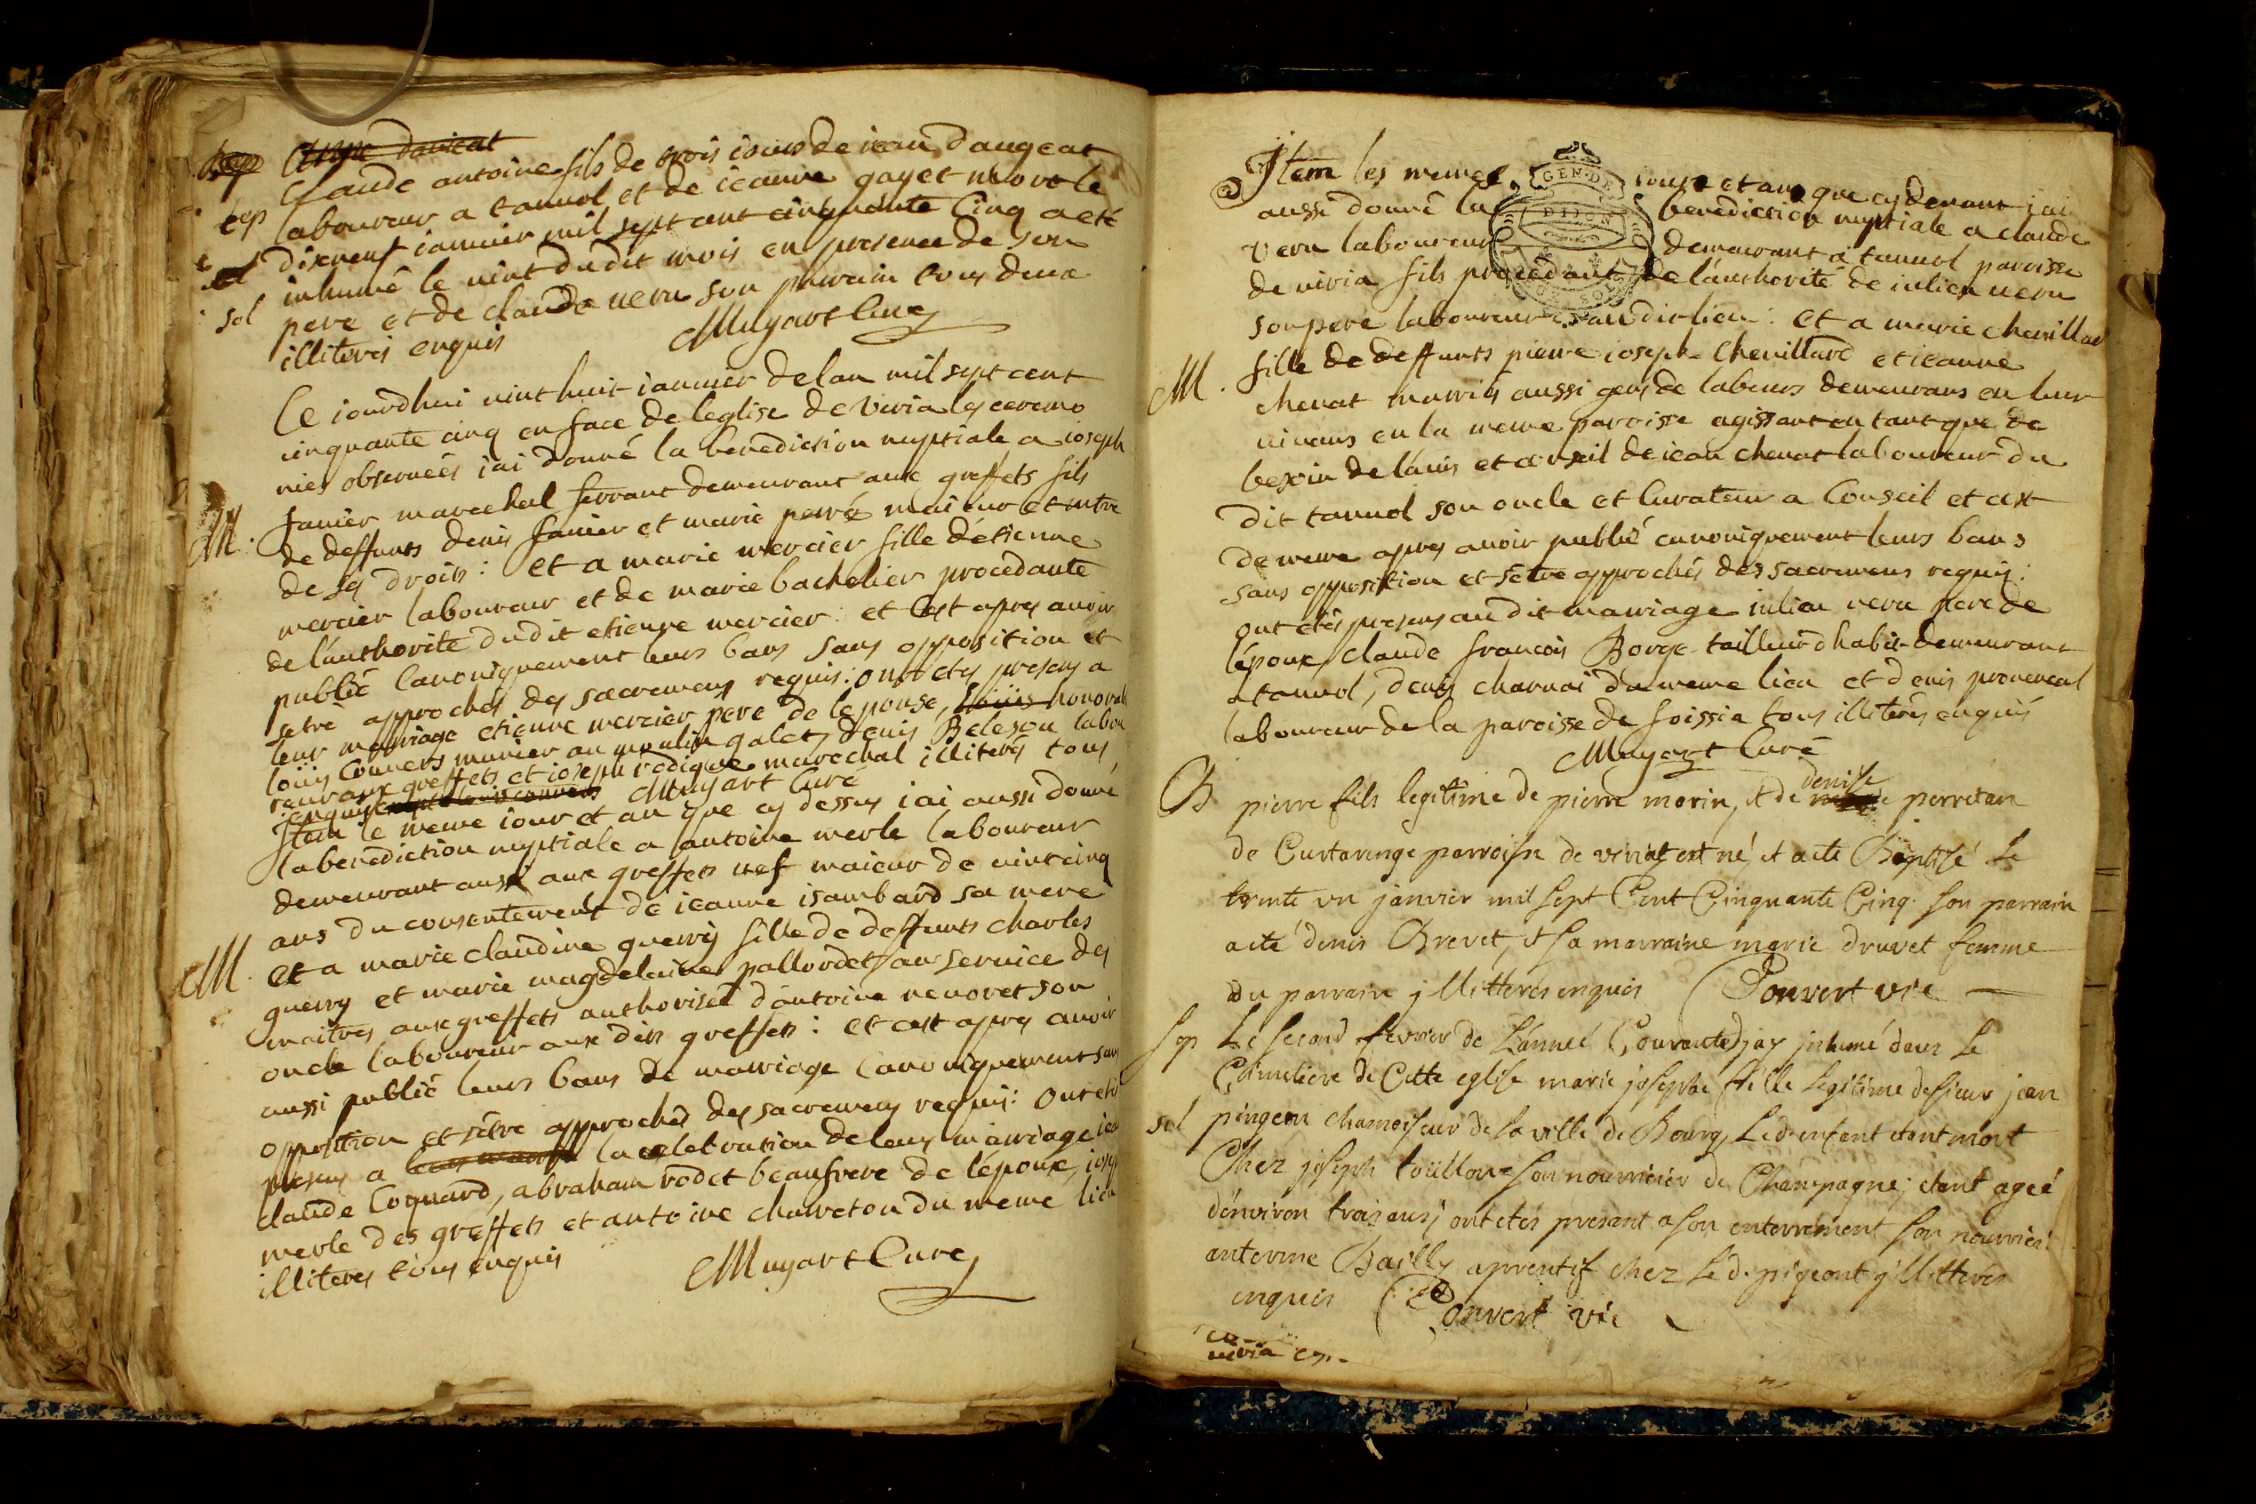 Claude antoine fils de trois iours de iean dangeat
Sep laboureur a tannol et de ieanne gayet mort le
dixneuf ianuier mil sept cent cinquante Cinq a eté
inhumé le uint dudit mois en presence de son
sol pere et de claude ueru son parain tous deux
illiterés enquis Muyart Curé
Ce iourdhui uint huit ianuier de lan mil sept cent
cinquante cinq en face de leglise de viria les ceremo
nies obseruées iai donné la benediction nuptiale a ioseph
M. fanier marechal ferrant demeurant aux greffets fils
de deffunts denis fanier et marie maieur et mtre
de ses droits : et a marie mercier fille détienne
mercier laboureur et de marie bachelier procedante
de lauthorité dudit etienne mercier : et cest apres auoir
publié Canoniquement leurs bans sans opposition et
setre approchés des sacremens requis : ont etes presens a
leur marriage etienne mercier pere de lepouse,
loüis Conuers munier au moulin galet, denis Beleson labou
reur aux greffets et ioseph rodigue marechal illiterés tous
enquis Muyart Curé
Item le meme iour et an que cy dessus iai aussi donné
la benediction nuptiale a antoine merle laboureur
demeurant aussi aux greffets nef maieur de uint cinq
ans du consentement de ieanne isambard sa mere
M. et a marie claudine querry fille de deffunts charles
querry et marie magdelaine pallordet au seruice des
maitres aux greffets authorisée dantoine renoret son
oncle laboureur aux dits greffets : et cest apres auoir
aussi publié leurs bans de marriage Canoniquement sans
opposition et sétre approchés des sacremens requis : ont eté
presens a la celebration de leur marriage
claude Coquard, abraham rodet beaufrere de lépoux, iosep
merle des greffets et antoine charreton du meme lieu
illiterés tous enquis Muyart Curé
Item les memes iours et ans que cy deuant iai
aussi donné la benediction nuptiale a claude
veru laboureur demeurant a tannol paroisse
de viria fils procedant de lauthorité de iulien ueru
son pere laboureur audit lieu : et a marie cheuillard
M. fille de deffunts pierre ioseph Cheuillard et ieanne
chenat marriés aussi gens de labeurs demeurans en leur
uiuans en la meme paroisse agissant en tant que de
besoin de lauis et conseil de iean chenat laboureur du
dit tannol son oncle et Curateur a Conseil et cest
de meme apres auoir publié canoniquement leurs bans
sans opposition et setre approchés des sacremens requis :
ont etés presens audit marriage iulien veru pere de
lépoux, claude francois Borge tailleur dhabit demeurant
a tannol, denis charnai du meme lieu et denis prouencal
laboureur de la paroisse de foissia tous illiterés enquis
Muyart Curé
B pierre fils legitime de pierre morin, et de denise perretan
de Curtaringe parroisse de viriat est né, et a eté Baptisé Le
trente un janvier mil sept Cent Cinquante Cinq. son parrain
a eté denis Brevet, et sa marraine marie druvet femme
du parrain jllitterés enquis Convert vic
Sep Le second fevrier de L'année Courante j'ay jnhumé dans Le
Cimetiere de Cette eglise marie josephe fille Legitime de sieur jean
sol pingeon chamoiseur de La ville de Bourg, Led. enfant etant mort
Chez joseph toüillon son nourricier de Champagne; etant ageé
d'environ trois ans; ont etés presant a son enterrement son nourricier
antoinne Bailly aprentif chez Led. pigeont jllitterés
enquis Convert vic
viria